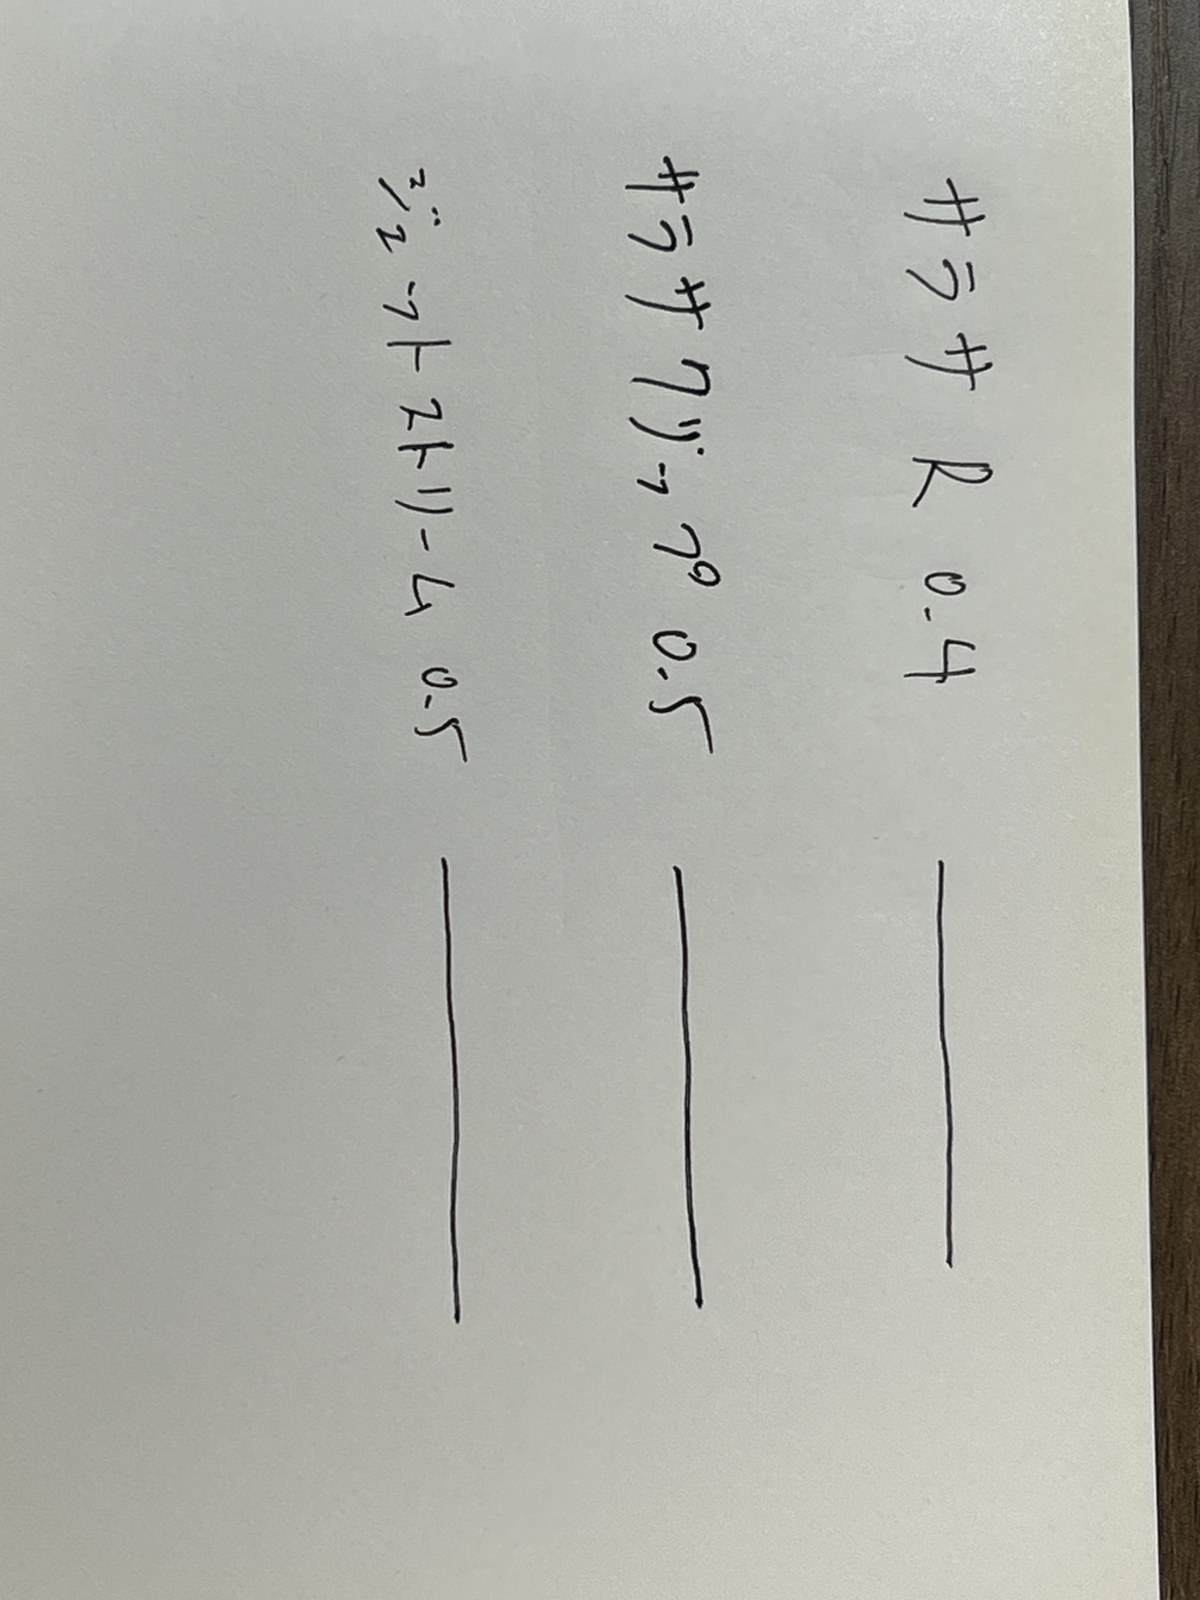 サラサ R 0.4
サラサ クリップ 0.5
ジェットストリーム 0.5